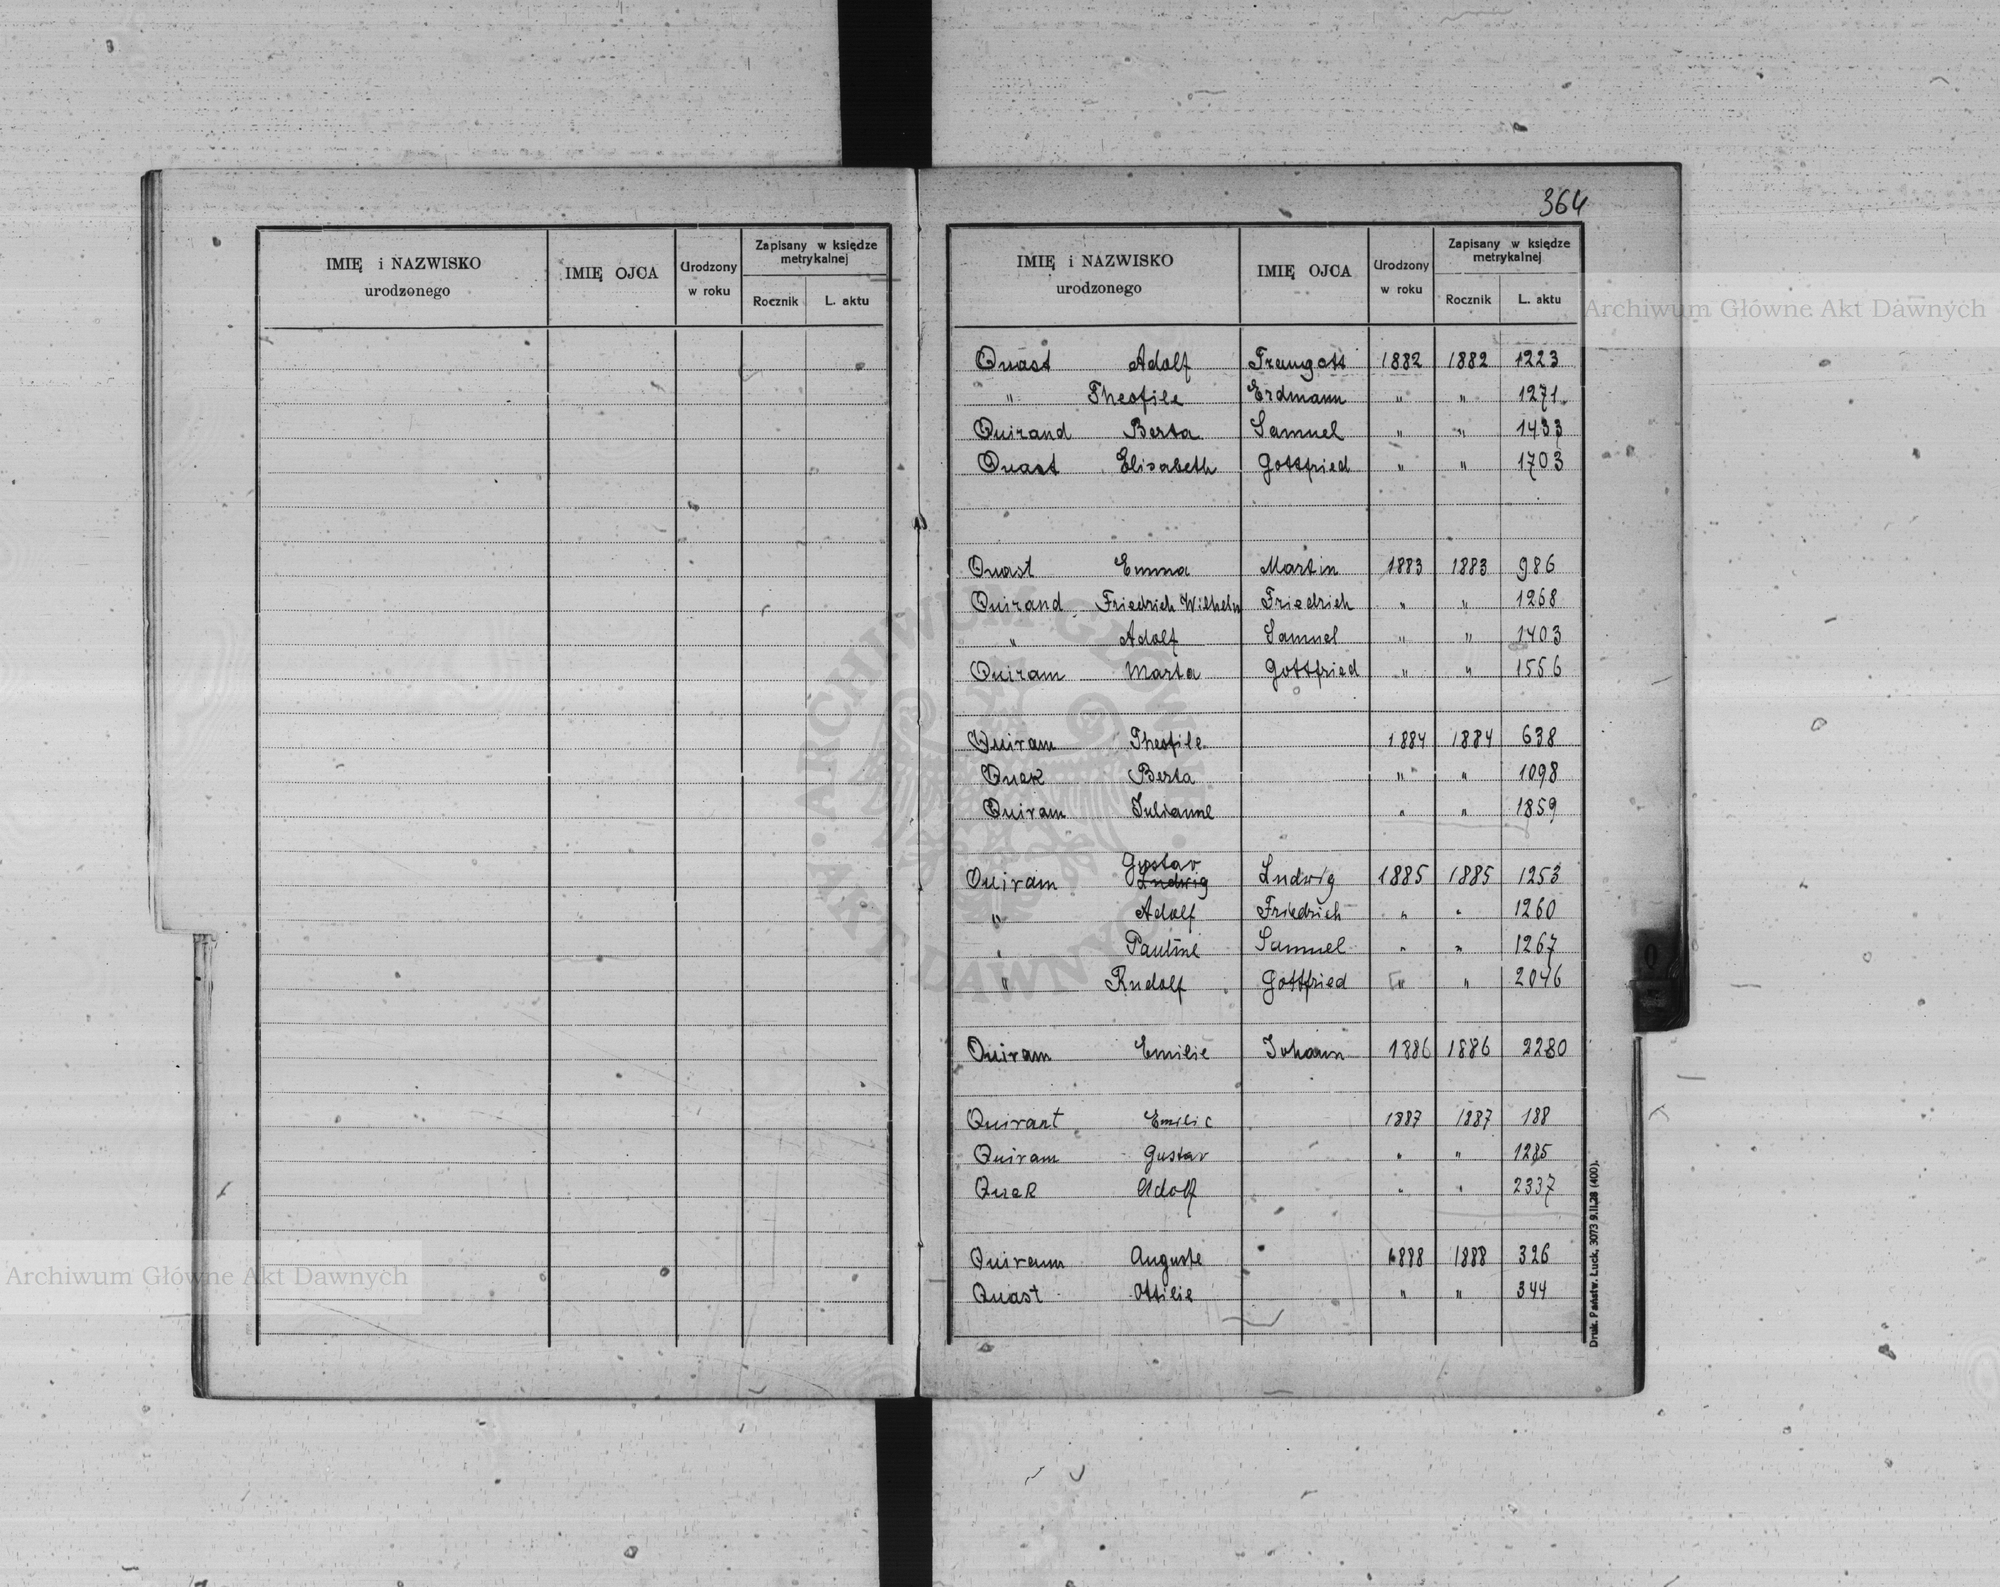 364
IMIĘ i NAZWISKO
urodzonego
IMIĘ OJCA
Urodzony
w roku
Zapisany w księdze
metrykalnej
Rocznik
L. aktu
IMIĘ i NAZWISKO
urodzonego
IMIĘ OJCA
Urodzony
w roku
Zapisany w księdze
metrykalnej
Rocznik
L. aktu
Quast Adolf Traugott 1882 1882 1223
" Theofile Erdmann " " 1271
Quirand Berta Samuel " " 1433
Quast Elisabeth Gottfried " " 1703
Quast Emma Martin 1883 1883 986
Quirand Friedrich Wilhelm Friedrich " " 1268
" Adolf Samuel " " 1403
Quiram Marta Gottfried " " 1556
Quiram Theofile 1884 1884 638
Quek Berta " " 1098
Quiram Julianne " " 1859
Gustav
Quiram Ludwig Ludwig 1885 1885 1253
" Adolf Friedrich " " 1260
" Pauline Samuel " " 1267
" Rudolf Gottfried " " 2046
Quiram Emilie Johann 1886 1886 2280
Quirant Emilie 1887 1887 188
Quiram Gustav " " 1285
Quek Adolf " " 2337
Quiram Auguste 1888 1888 326
Quast Ottilie " " 344
Druk. Państw. Łuck, 3073 9.II.28 (400).
Q
Archiwum Główne Akt Dawnych
Archiwum Główne Akt Dawnych
ARCHIWUM GŁÓWNE AKT DAWNYCH